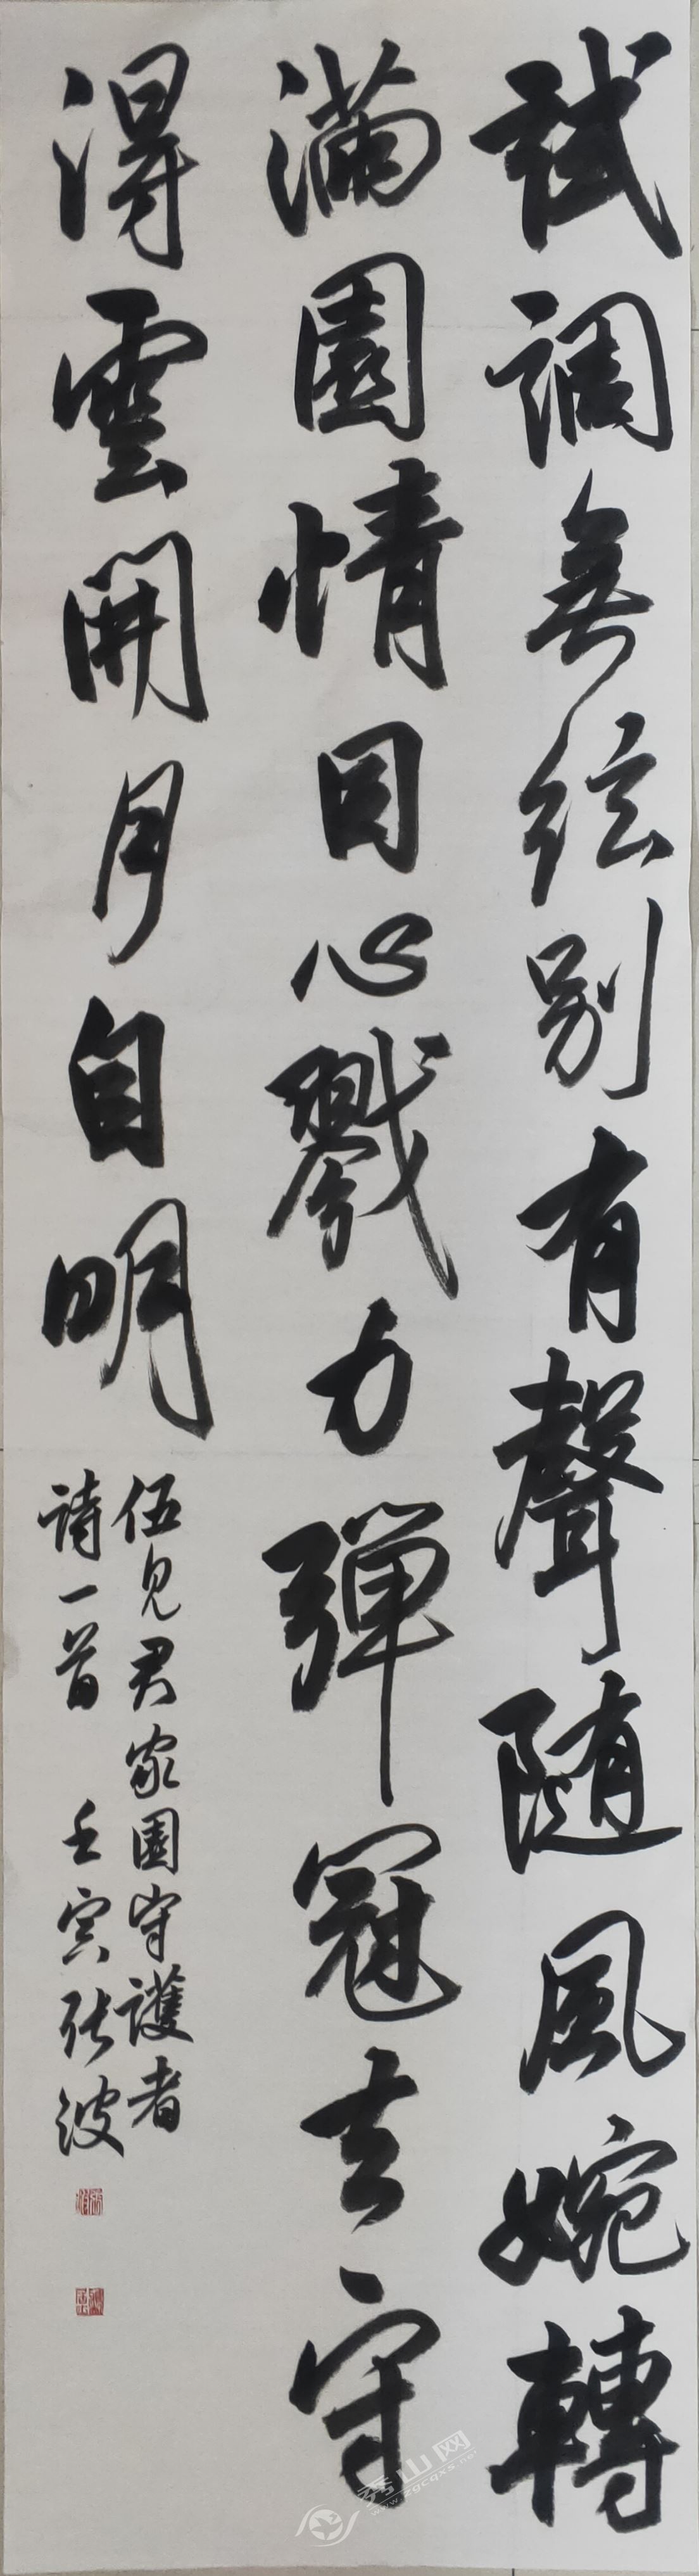 試調無絃别有聲随風婉轉
滿園情同心戮力弹冠去守
得雲開月自明
伍見君家園守護者
詩一首 壬寅張波
秀山网
www.zgcqxs.net